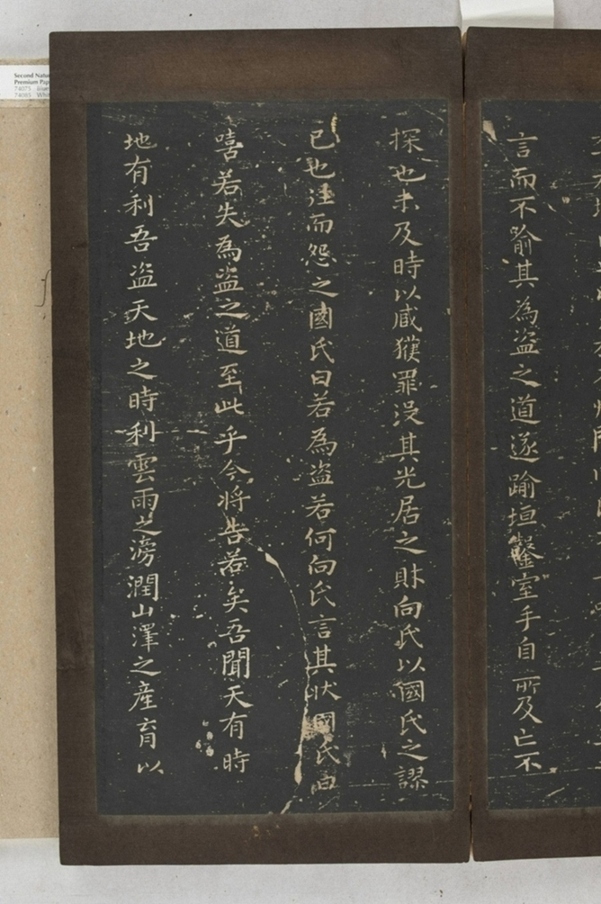 言而不喻其為盜之道遂踰垣鑿室手自所及亡不
探也未及時以臧獲罪沒其先居之財向氏以國氏之謬
己也往而怨之國氏曰若為盜若何向氏言其狀國氏曰
嘻若失為盜之道至此乎今將告若矣吾聞天有時
地有利吾盜天地之時利雲雨之滂潤山澤之產育以
Second
Premium